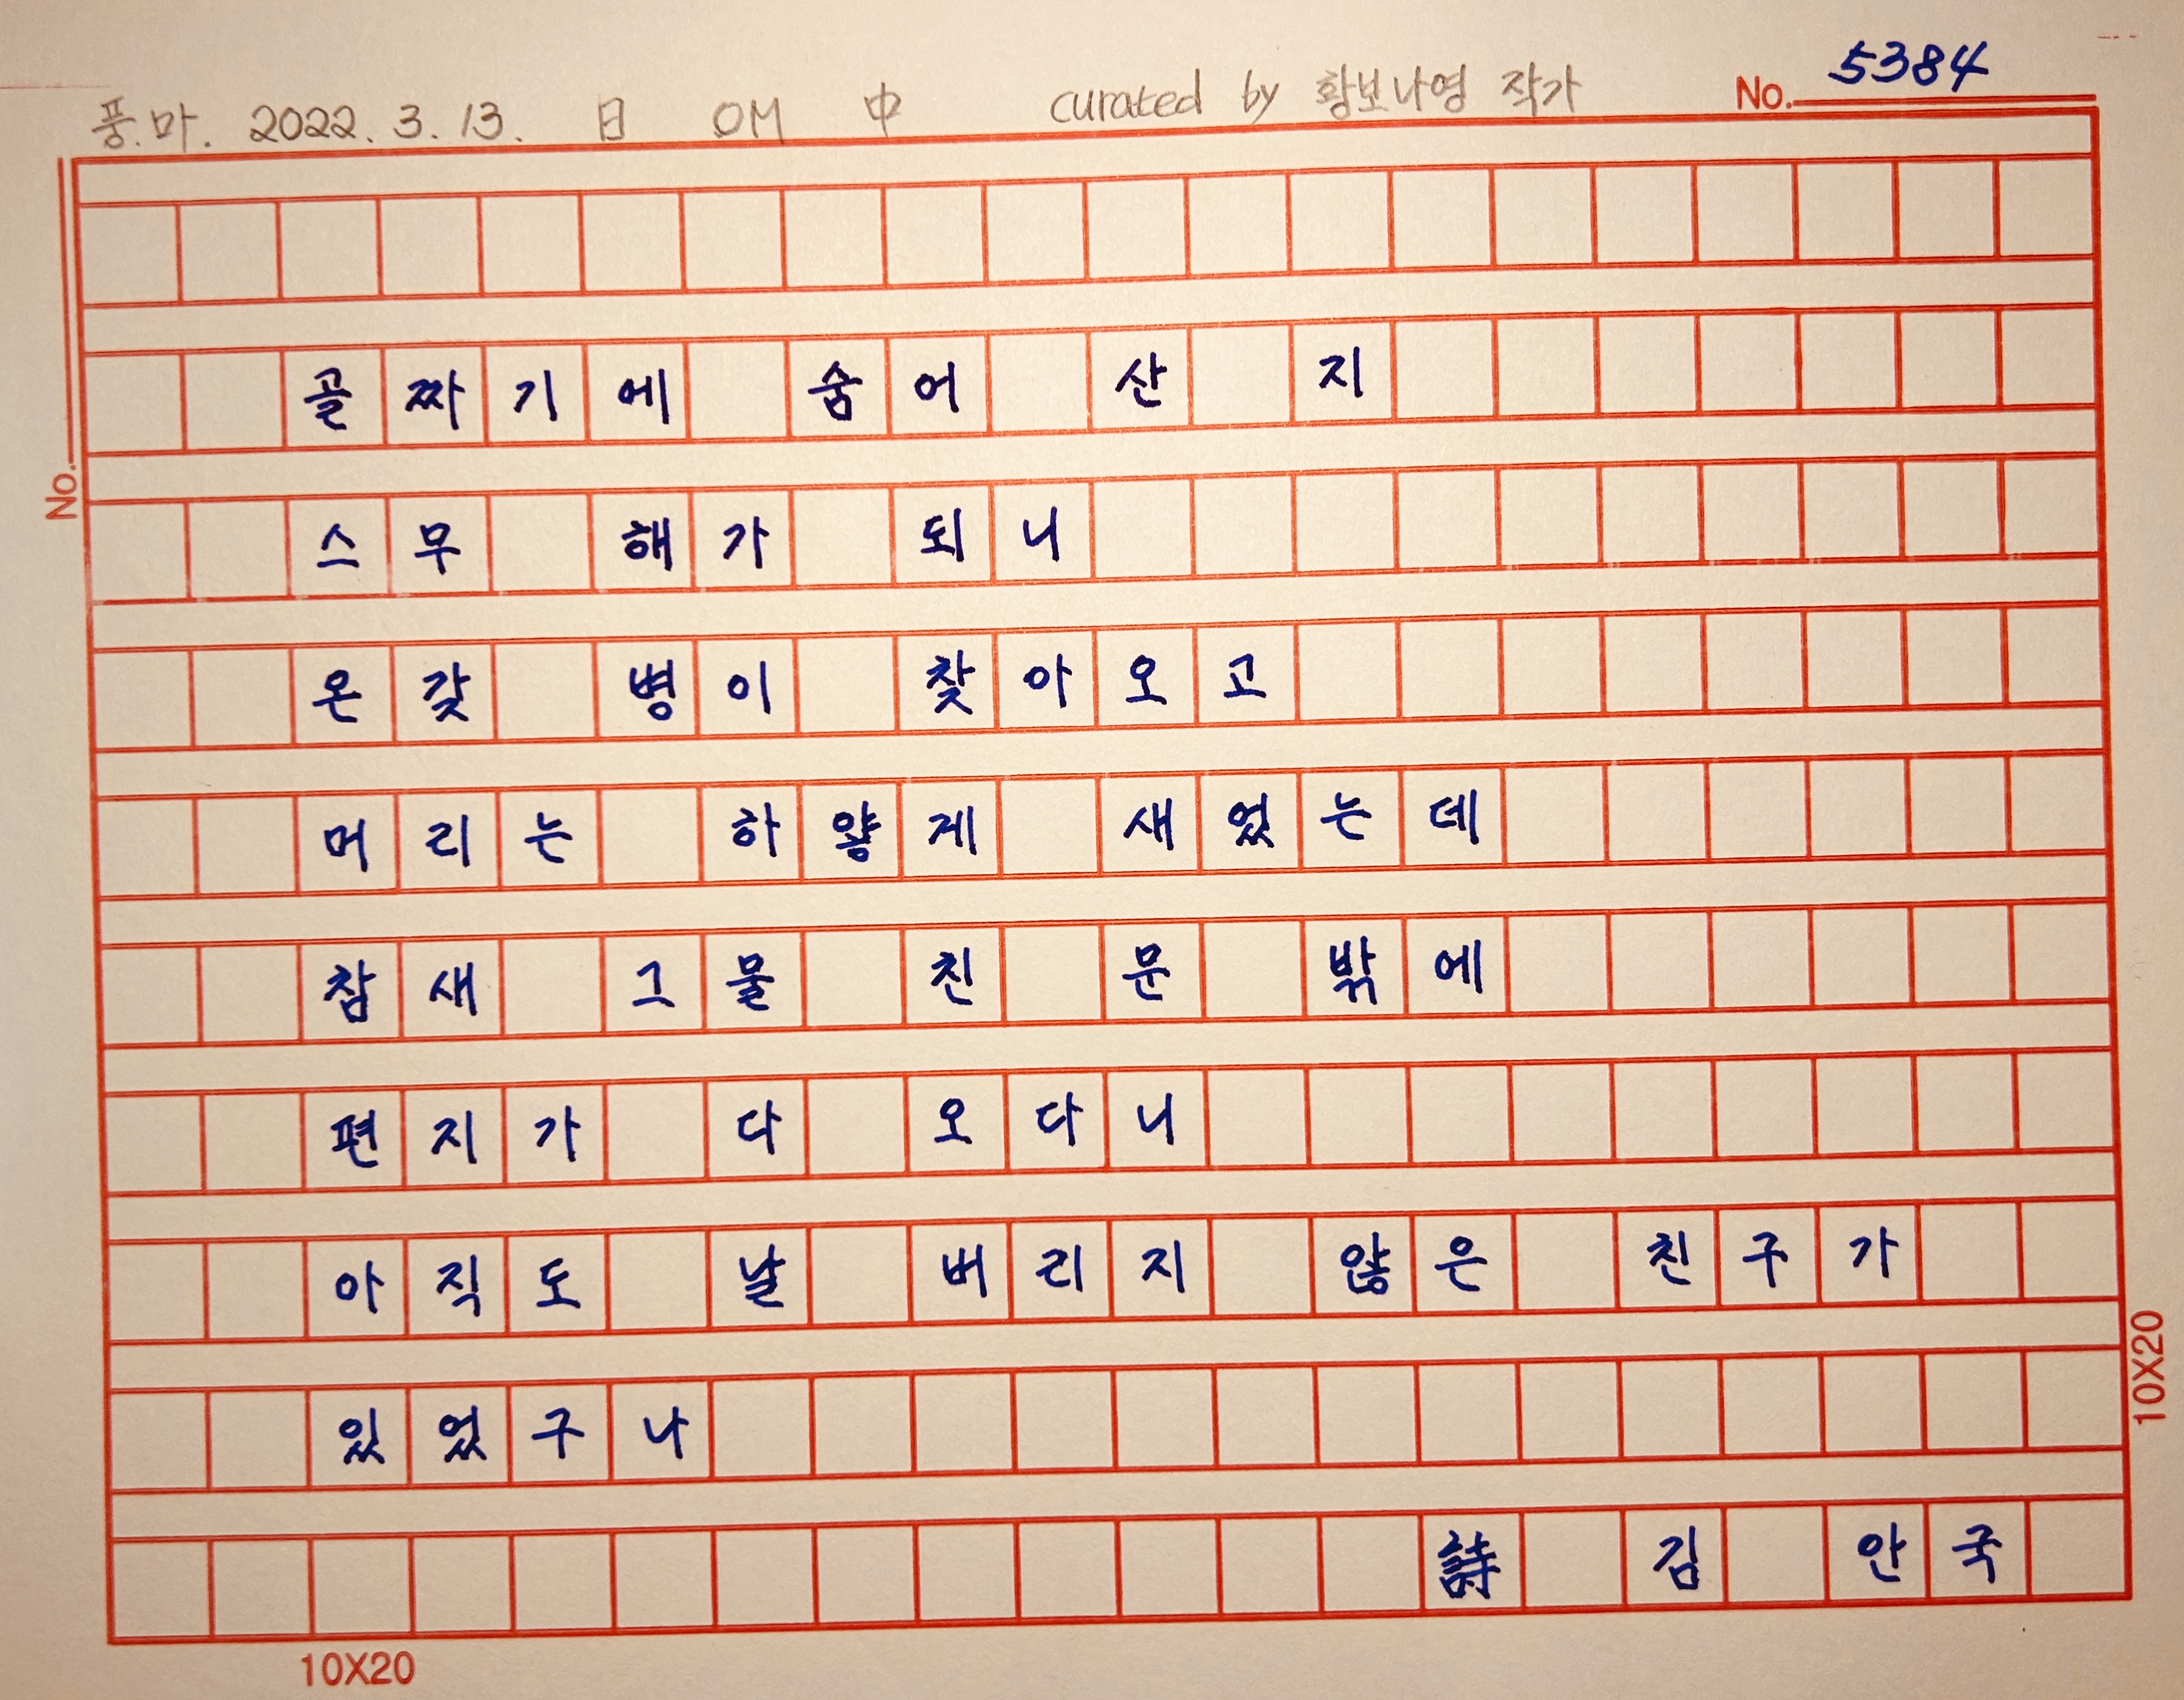 풍.마. 2022. 3. 13. 日 OM 中 curated by 황보나영 작가 No. 5384
골짜기에 숨어 산 지
No.
스무 해가 되니
온갖 병이 찾아오고
머리는 하얗게 새었는데
참새 그물 친 문 밖에
편지가 다 오다니
아직도 날 버리지 않은 친구가
있었구나
10X20
詩 김 안국
10X20